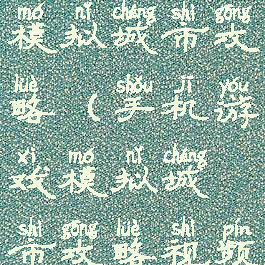 mó nǐ chéng shì gōng
模拟城市攻
lüè shǒu jī yóu
略（手机游
xì mó nǐ chéng
戏模拟城
shì gōng lüè shì pín
市攻略视频